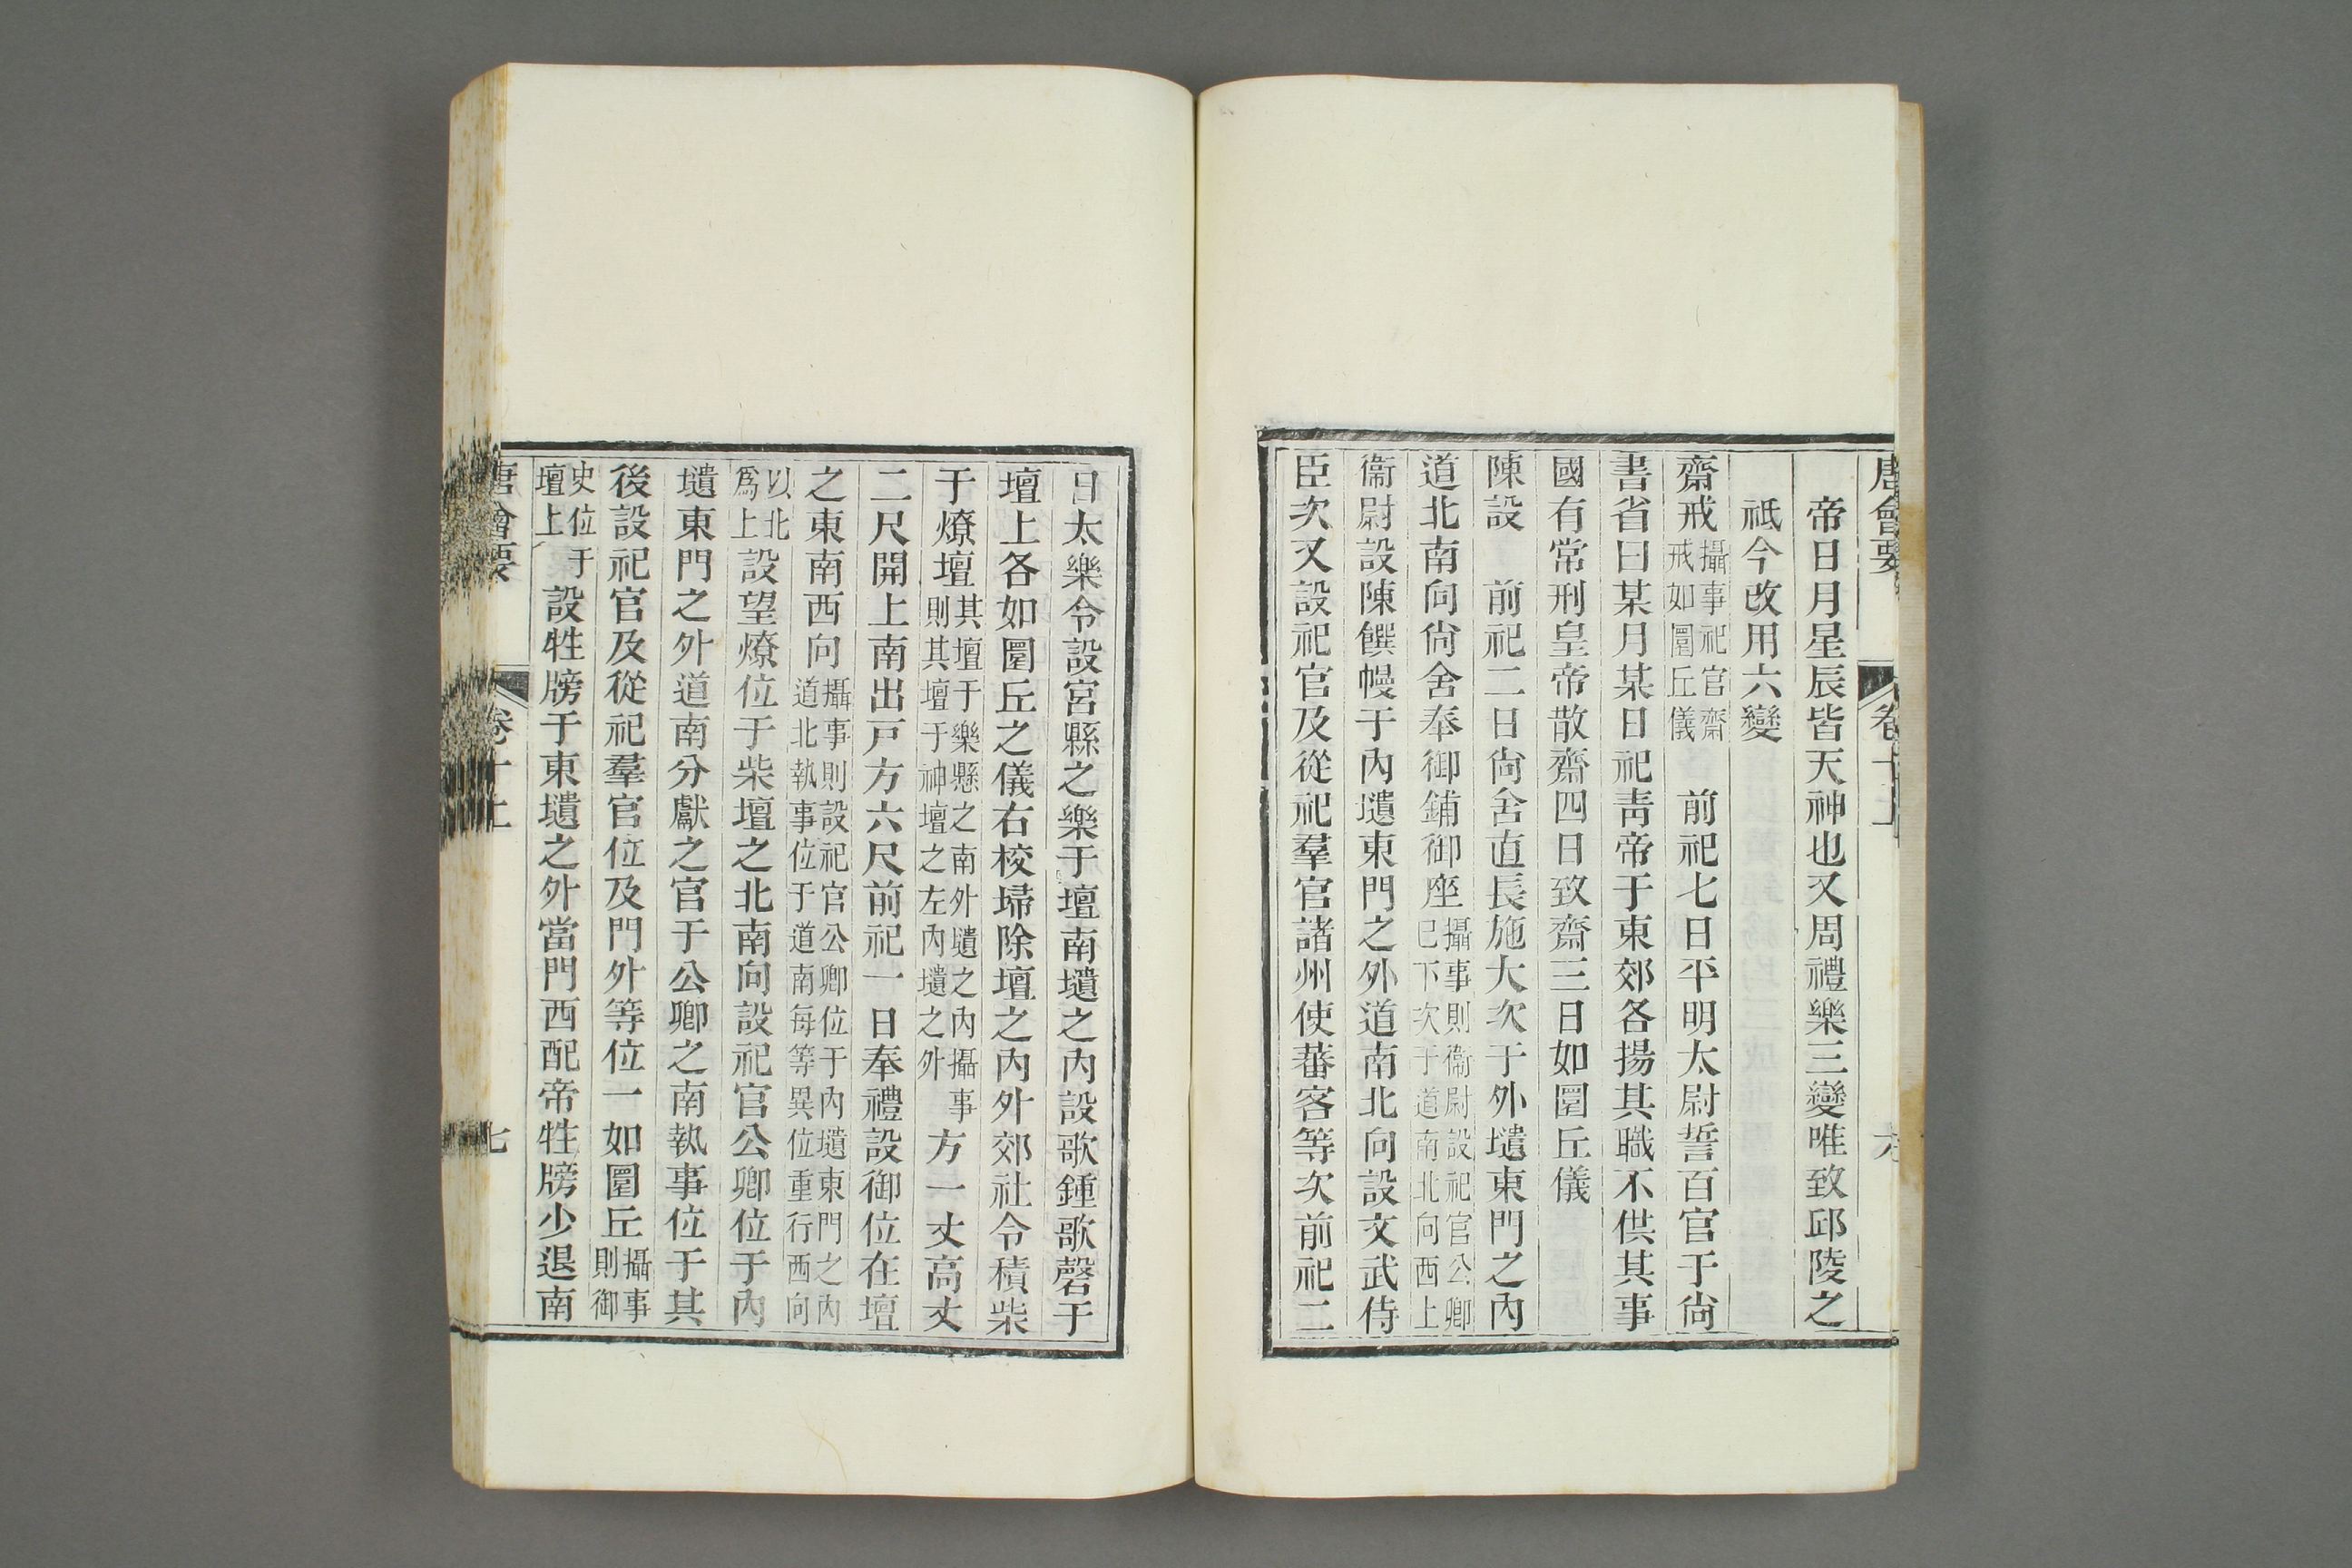 唐會要 卷十上 六
帝日月星辰皆天神也又周禮樂三變唯致邱陵之
祇今改用六變
齋戒攝事祀官齋戒如圜丘儀 前祀七日平明太尉誓百官于尙
書省曰某月某日祀靑帝于東郊各揚其職不供其事
國有常刑皇帝散齋四日致齋三日如圜丘儀
陳設 前祀二日尙舍直長施大次于外壝東門之內
道北南向尙舍奉御鋪御座攝事則衞尉設祀官公卿巳下次于道南北向西上
衞尉設陳饌幔于內壝東門之外道南北向設文武侍
臣次又設祀官及從祀羣官諸州使蕃客等次前祀二
日太樂令設宮縣之樂于壇南壝之內設歌鍾歌磬于
壇上各如圜丘之儀右校埽除壇之內外郊社令積柴
于燎壇其壇于樂懸之南外壝之內攝事則其壇于神壇之左內壝之外方一丈高丈
二尺開上南出戸方六尺前祀一日奉禮設御位在壇
之東南西向攝事則設祀官公卿位于內壝東門之內道北執事位于道南每等異位重行西向
以北爲上設望燎位于柴壇之北南向設祀官公卿位于內
壝東門之外道南分獻之官于公卿之南執事位于其
後設祀官及從祀羣官位及門外等位一如圜丘攝事則御
史位于壇上設牲牓于東壝之外當門西配帝牲牓少退南
唐會要 卷十上 七